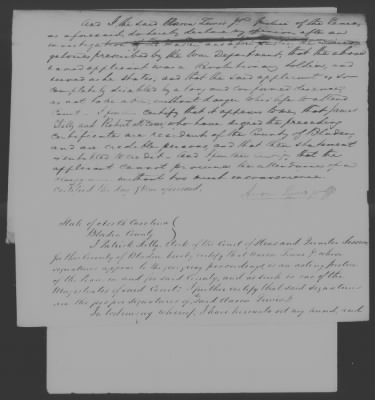 And I the said Aaron Lewis Jr Justice of the Peace,
as aforesaid, do hereby declare my opinion after an
investigation and under
prescribed by the War Department, that the above
named applicant was a Revolutionary soldier, and
served as he states, and that the said applicant is so
completely disabled by a long and confirmed disease,
as not to be able without danger to his life to attend
Court. I further certify that it appears to me, that James
Kelly and Robert who have signed the preceding
certificates are residents of the County of Bladen
and are credible persons, and that their statement
is entitled to credit and that the
applicant cannot procure the attendance of a
without too much inconvenience.
Certified the day & year aforesaid.
Aaron Lewis J P
State of North Carolina
Bladen County
I Patrick Kelly, Clerk of the Court of Pleas and Quarter Sessions
for the County of Bladen hereby certify that Aaron Lewis Jr whose
signatures appear to the foregoing proceedings is an acting Justice
of the Peace in and for said County, and as such is one of the
Magistrates of said Court: I further certify that said signatures
are the proper signatures of said Aaron Lewis Jr
In testimony whereof, I have hereunto set my hand, and